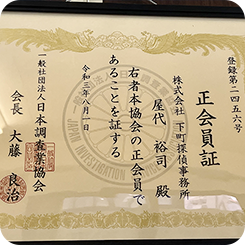 登録第二四五六号
正会員証
株式会社 下町探偵事務所
屋代 裕司 殿
右者本協会の正会員で
あることを証する
令和三年八月一日
一般社団法人日本調査業協会
会長 大藤 良治
JAPAN INVESTIGATION